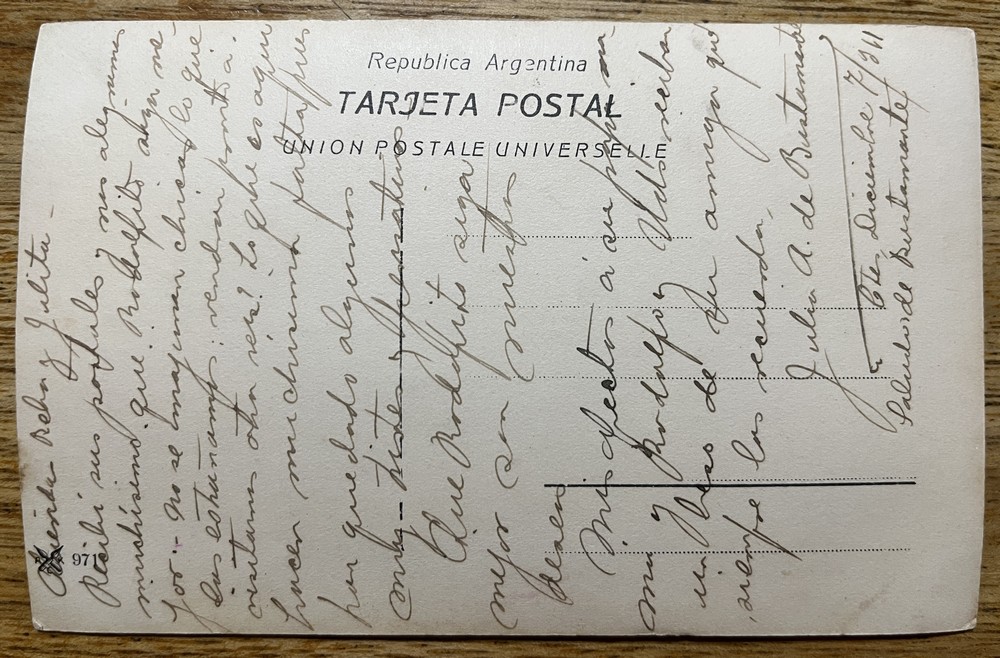 Republica Argentina
TARJETA POSTAL
UNION POSTALE UNIVERSELLE
971
Querida Reha y Julita -
Recibi sus postales y nos alegramos
muchisimo que Rodolfito siga me-
jor - no se imaginan chicas lo que
las extrañamos; vendran pronto a
visitarnos otra vez? Lo que es aqui
hacen muchisima falta, pues
han quedado algunos
muy tristes
Que Rodolfito siga
mejor son nuestros
deseos
Mis afectos á su mama
y Rodolfo y Uds reciban
un beso de su amiga que
siempre las recuerda,
Julia A. de Bustamante
Ctes, diciembre 7/911
Saludos de Bustamante